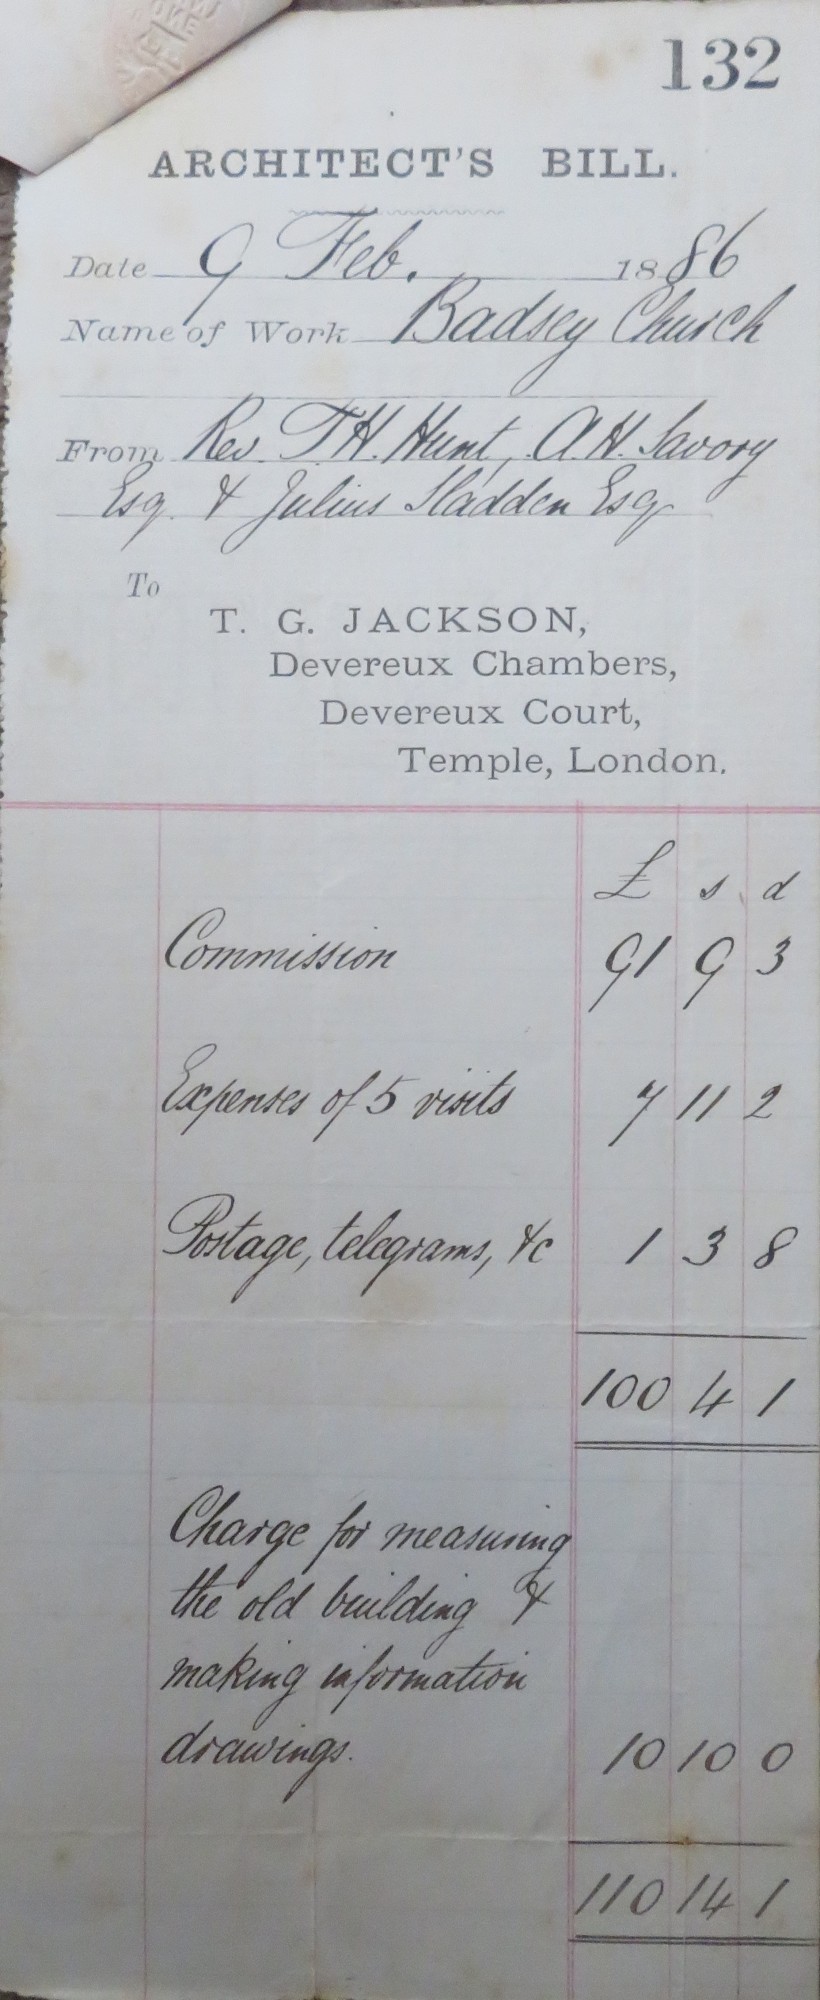 132
ARCHITECT'S BILL.
Date 9 Feb. 1886
Name of Work Badsey Church
From Rev. T H. Hunt, A. H. Savory
Esq. & Julius Sladden Esq
To
T. G. JACKSON,
Devereux Chambers,
Devereux Court,
Temple, London.
£ s d
Commission 91 9 3
Expenses of 5 visits 7 11 2
Postage, telegrams, &c 1 3 8
100 4 1
Charge for measuring
the old building &
making information
drawings. 10 10 0
110 14 1